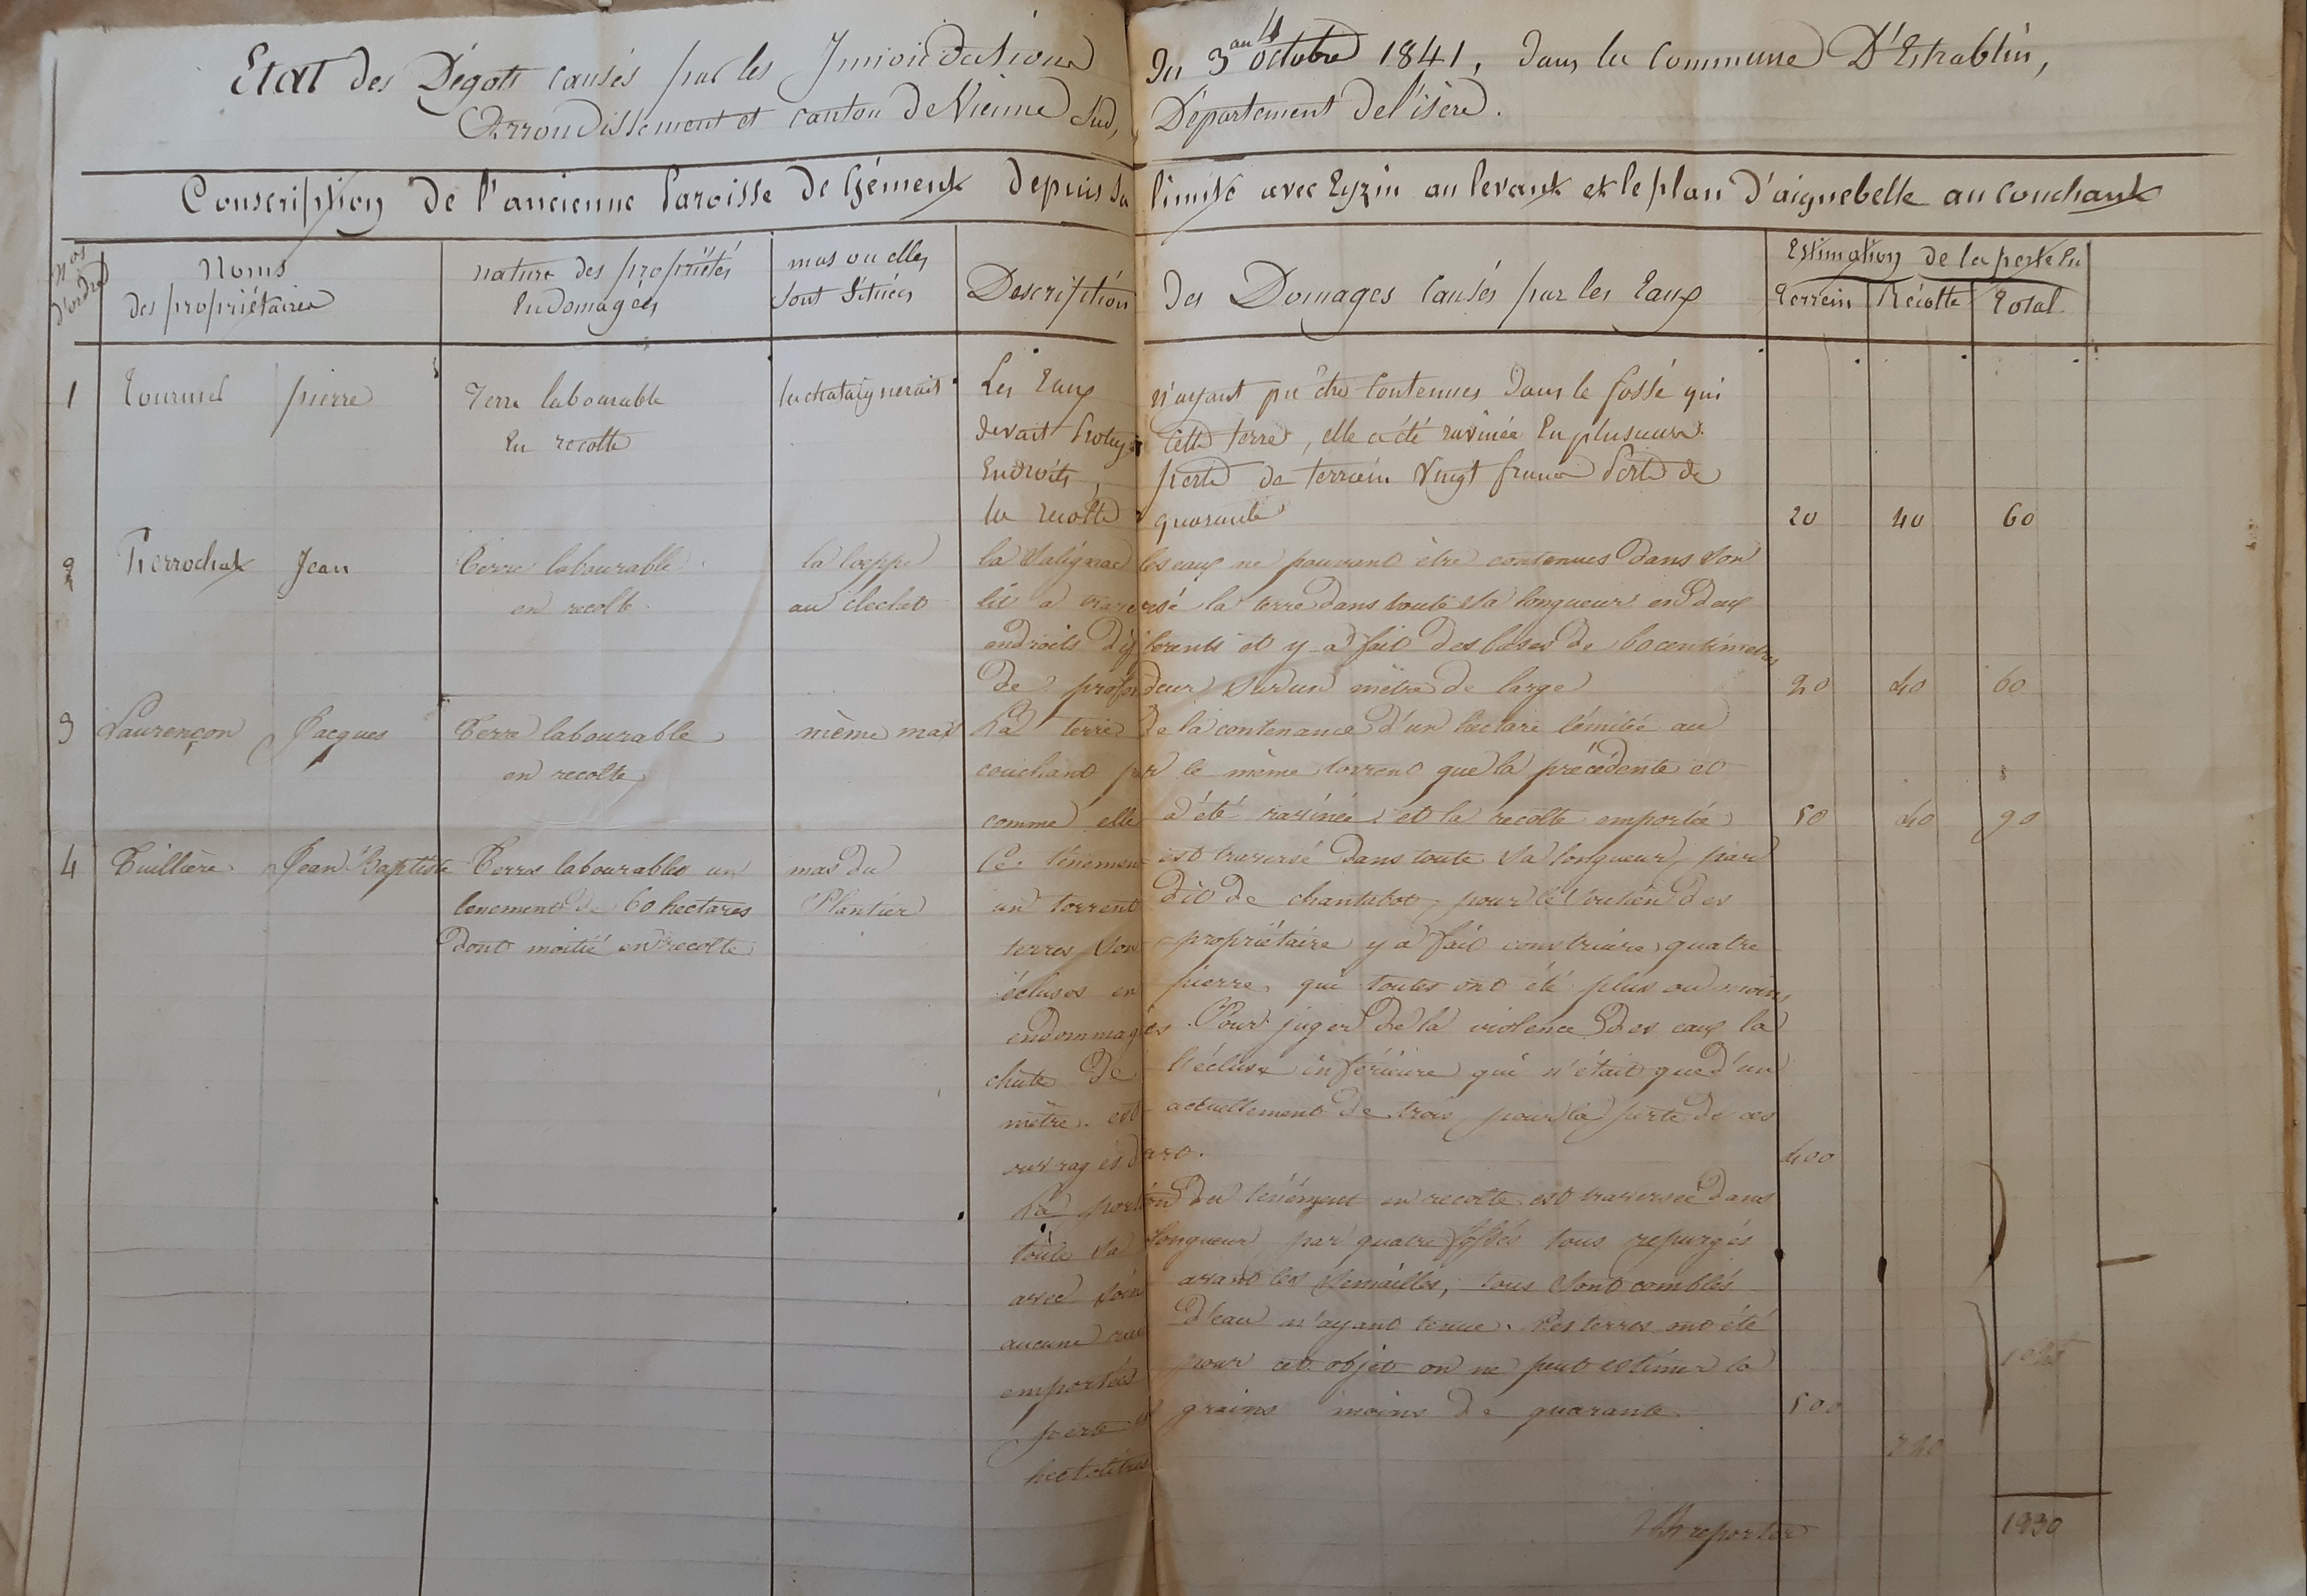 Etat des Dégats causés par les Innondations du 3 au 4 octobre 1841, dans la Commune D'Estrablin,
Arrondissement et canton de Vienne Sud, Département de l'isère.
Conscription de l'ancienne Paroisse de Gémens depuis sa limite avec Eyzin au levant et le plan d'aiguebelle au couchant
Nos d'ordre
Noms
des propriétaires
nature des propriétés
Endomagées
mas ou elles
sont Situées
Description des Domages Causés par les Eaux
Estimation de la perte en
terrein Récolte Total
1 pierre
Terre labourable
En recolte
la chataigneraie
Les Eaux n'ayant pu être Contenues dans le fossé qui
devait Proteger cette terre, elle a été ravinée En plusieurs
Endroits, perte de terrein Vingt francs Perte de
la recolte quarante 20 40 60
2 Pierrochat Jean
Terre labourable
en recolte
la loeppe
au
la Valignac les eaux ne pouvant être contenues dans son
lit a traversé la terre dans toute sa longueur en deux
endroits différents et y a fait des fosses de 60 centimètres
de profondeur sur un mètre de large 20 40 60
3 Laurençon Jacques
Terre labourable
en recolte
même mas
La terre de la contenance d'un hectare limitée au
couchant par le même torrent que la précédente et
comme elle a été ravinée et la recolte emportée 50 40 90
4 Tuillière Jean Baptiste
Terres labourables un
tenement de 60 hectares
dont moitié en recolte
mas du
Plantier
Ce tènement est traversé dans toute sa longueur par
un torrent dit de chantabot, pour le soutien des
terres son propriétaire y a fait construire quatre
écluses en pierre qui toutes ont été plus ou moins
endommagés. Pour juger de la violence des eaux la
chute de l'écluse inférieure qui n'était que d'un
mètre est actuellement de trois pour la perte de ces
ouvrages d'art. 400
La portion du tènement en recolte est traversée dans
toute sa longueur par quatre fossés tous repurgés
avec soin avant les semailles, tous sont comblés
aucune d'eau n'ayant tenue. Les terres ont été
emportées pour cet objet on ne peut estimer la
perte en grains moins de quarante 500
hectolitres
A reporter 1930